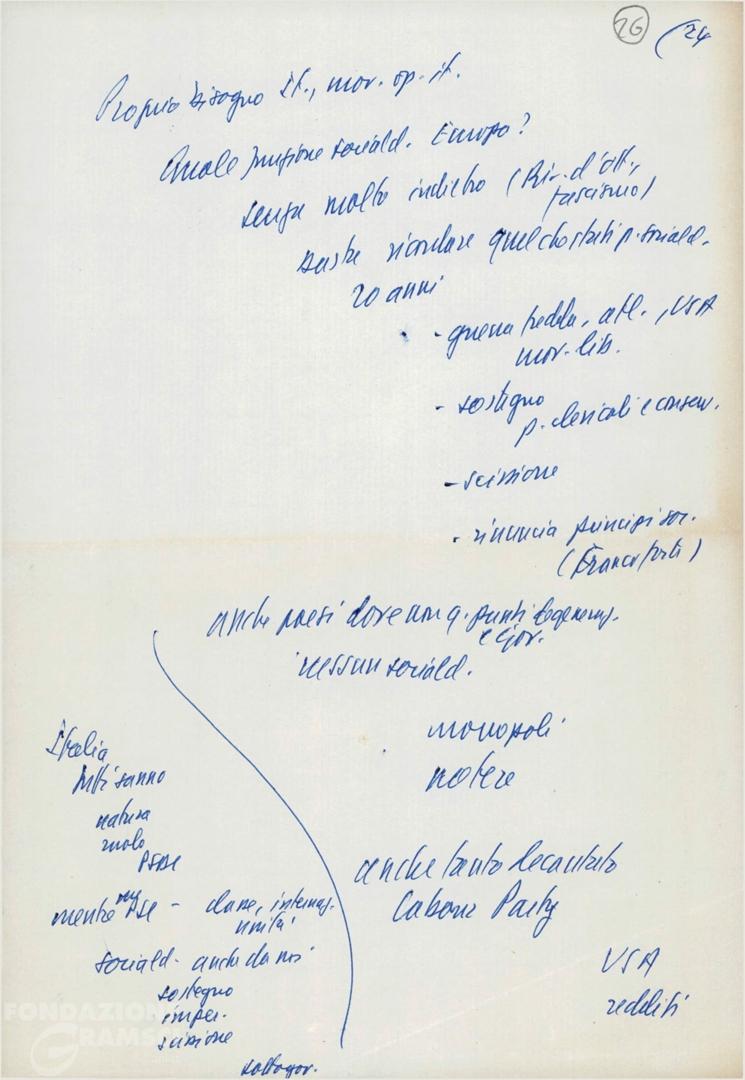 26 (24
Proprio bisogno It., mov. op. it.
Quale funzione sociald. Europa?
senza molto indietro (Riv. d'ott.,
fascismo)
basta ricordare quel che stati p. sociald.
20 anni
- guerra fredda, atl., USA
mov. lib.
- sostegno
p. clericali e conserv.
- scissione
- rinuncia principi soc.
(Francoforte)
anche paesi dove non q. punti degeneraz.
e gov.
nessun sociald.
monopoli
potere
Italia
tutti sanno
natura
ruolo
PSDI
anche tanto decantato
Labour Party
mentre PSI - classe, internaz.
unità
sociald. anche da noi
sostegno
imper.
scissione
sottogov.
USA
redditi
FONDAZIONE
GRAMSCI